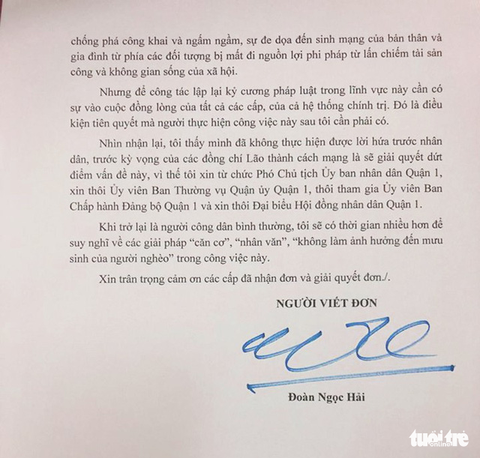 chống phá công khai và ngấm ngầm, sự đe dọa đến sinh mạng của bản thân và
gia đình từ phía các đối tượng bị mất đi nguồn lợi phi pháp từ lấn chiếm tài sản
công và không gian sống của xã hội.
Nhưng để công tác lập lại kỷ cương pháp luật trong lĩnh vực này cần có
sự vào cuộc đồng lòng của tất cả các cấp, của cả hệ thống chính trị. Đó là điều
kiện tiên quyết mà người thực hiện công việc này sau tôi cần phải có.
Nhìn nhận lại, tôi thấy mình đã không thực hiện được lời hứa trước nhân
dân, trước kỳ vọng của các đồng chí Lão thành cách mạng là sẽ giải quyết dứt
điểm vấn đề này, vì thế tôi xin từ chức Phó Chủ tịch Ủy ban nhân dân Quận 1,
xin thôi Ủy viên Ban Thường vụ Quận ủy Quận 1, thôi tham gia Ủy viên Ban
Chấp hành Đảng bộ Quận 1 và xin thôi Đại biểu Hội đồng nhân dân Quận 1.
Khi trở lại là người công dân bình thường, tôi sẽ có thời gian nhiều hơn để
suy nghĩ về các giải pháp “căn cơ”, “nhân văn”, “không làm ảnh hưởng đến mưu
sinh của người nghèo” trong công việc này.
Xin trân trọng cám ơn các cấp đã nhận đơn và giải quyết đơn./.
NGƯỜI VIẾT ĐƠN
Đoàn Ngọc Hải
tuổi trẻ